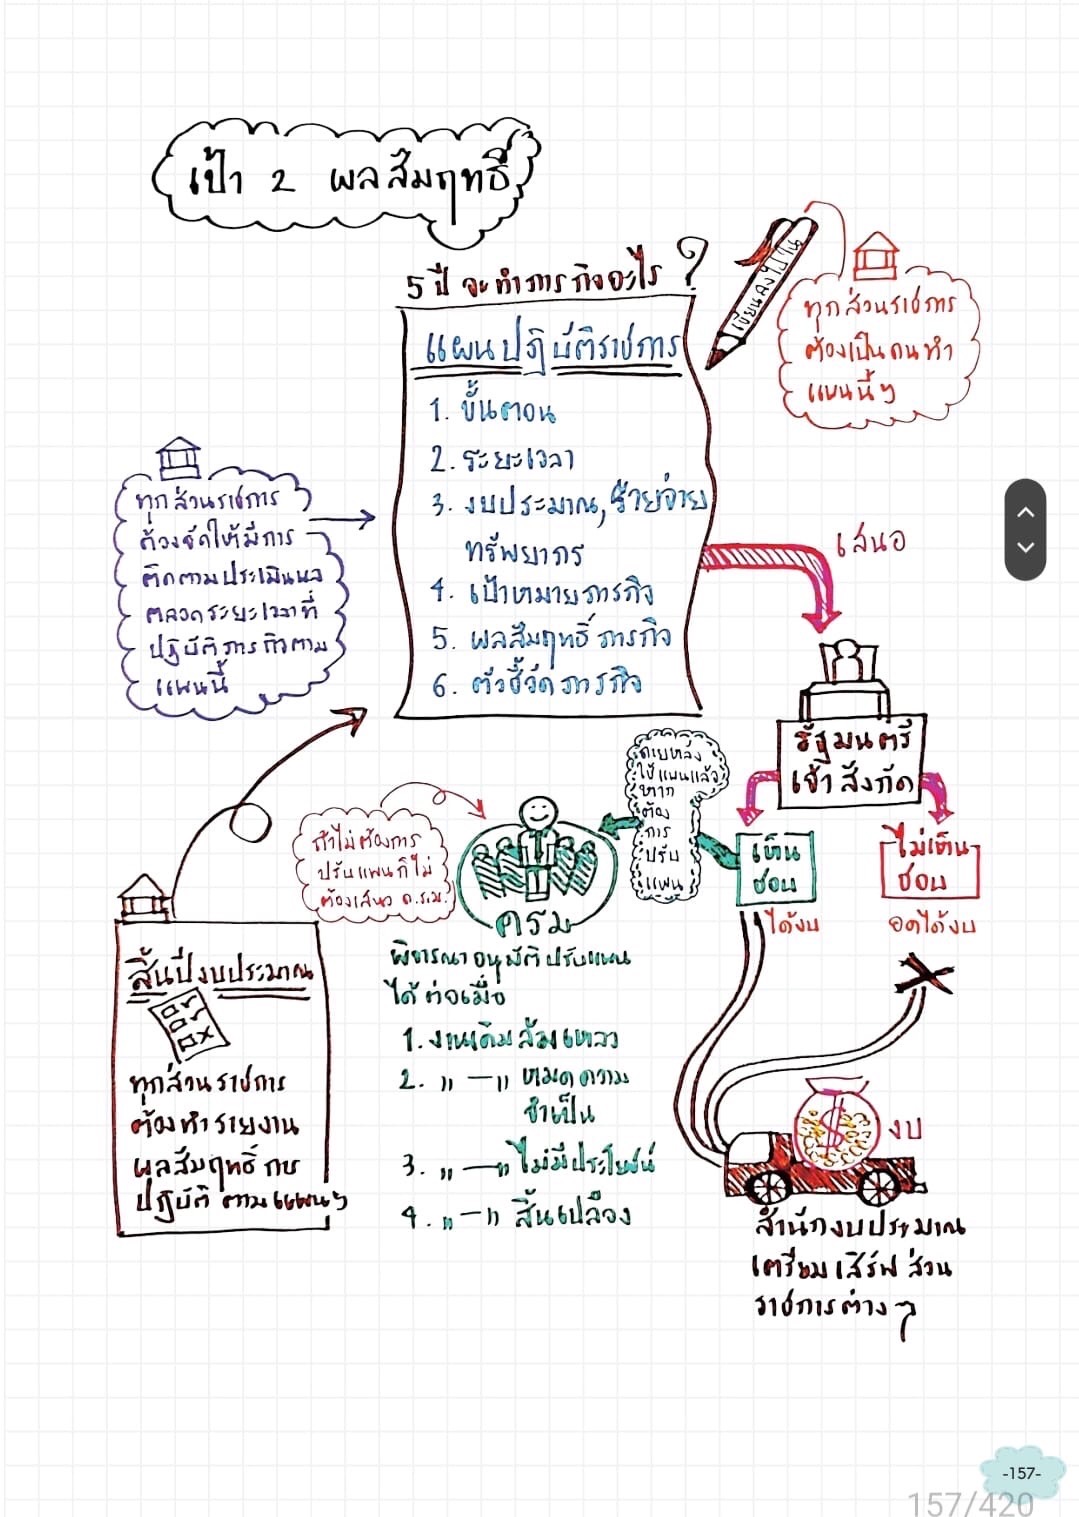 เป้า 2 ผลสัมฤทธิ์
5 ปี จะทำภารกิจอะไร ?
เขียนลงไปใน
ทุกส่วนราชการ
ต้องเป็นคนทำ
แผนนี้ๆ
แผนปฏิบัติราชการ
1. ขั้นตอน
2. ระยะเวลา
3. งบประมาณ, รายจ่าย
ทรัพยากร
4. เป้าหมายภารกิจ
5. ผลสัมฤทธิ์ภารกิจ
6. ตัวชี้วัดภารกิจ
ทุกส่วนราชการ
ต้องจัดให้มีการ
ติดตามประเมินผล
ตลอดระยะเวลาที่
ปฏิบัติภารกิจตาม
แผนนี้
เสนอ
รัฐมนตรี
เจ้าสังกัด
เห็น
ชอบ
ได้งบ
ไม่เห็น
ชอบ
อดได้งบ
ภายหลัง
ใช้แผนแล้ว
หาก
ต้อง
การ
ปรับ
แผน
ถ้าไม่ต้องการ
ปรับแผนก็ไม่
ต้องเสนอ ค.ร.ม.
ครม
พิจารณาอนุมัติปรับแผน
ได้ต่อเมื่อ
1. งานเดิมล้มเหลว
2. " — " หมดความ
จำเป็น
3. " — " ไม่มีประโยชน์
4. " — " สิ้นเปลือง
สิ้นปีงบประมาณ
ทุกส่วนราชการ
ต้องทำรายงาน
ผลสัมฤทธิ์การ
ปฏิบัติตามแผนๆ
$
งบ
สำนักงบประมาณ
เตรียมเสิร์ฟส่วน
ราชการต่างๆ
-157-
157/420